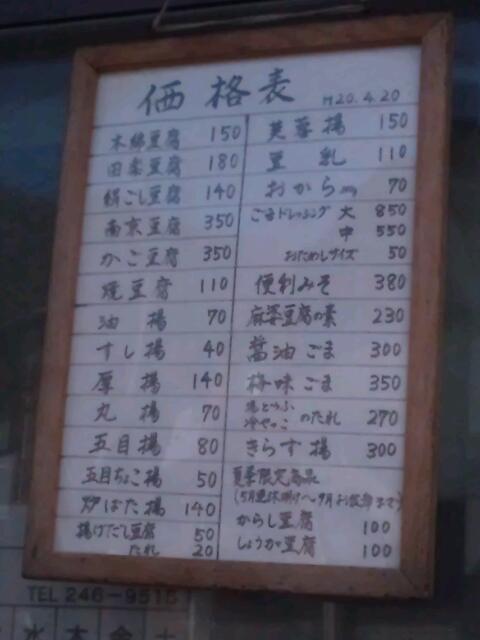 価格表 H20.4.20
木綿豆腐 150
田楽豆腐 180
絹ごし豆腐 140
南京豆腐 350
かご豆腐 350
焼豆腐 110
油揚 70
すし揚 40
厚揚 140
丸揚 70
五目揚 80
五目ちょこ揚 50
炉ばた揚 140
揚げだし豆腐 50
たれ 20
芙蓉揚 150
豆乳 110
おから 70
ごまドレッシング 大 850
中 550
おためしサイズ 50
便利みそ 380
麻婆豆腐の素 230
醤油ごま 300
梅味ごま 350
湯どうふ
冷やっこ のたれ 270
きらす揚 300
夏季限定商品
(5月連休明け〜9月お彼岸まで)
からし豆腐 100
しょうが豆腐 100
TEL 246-951
水 木 金 土